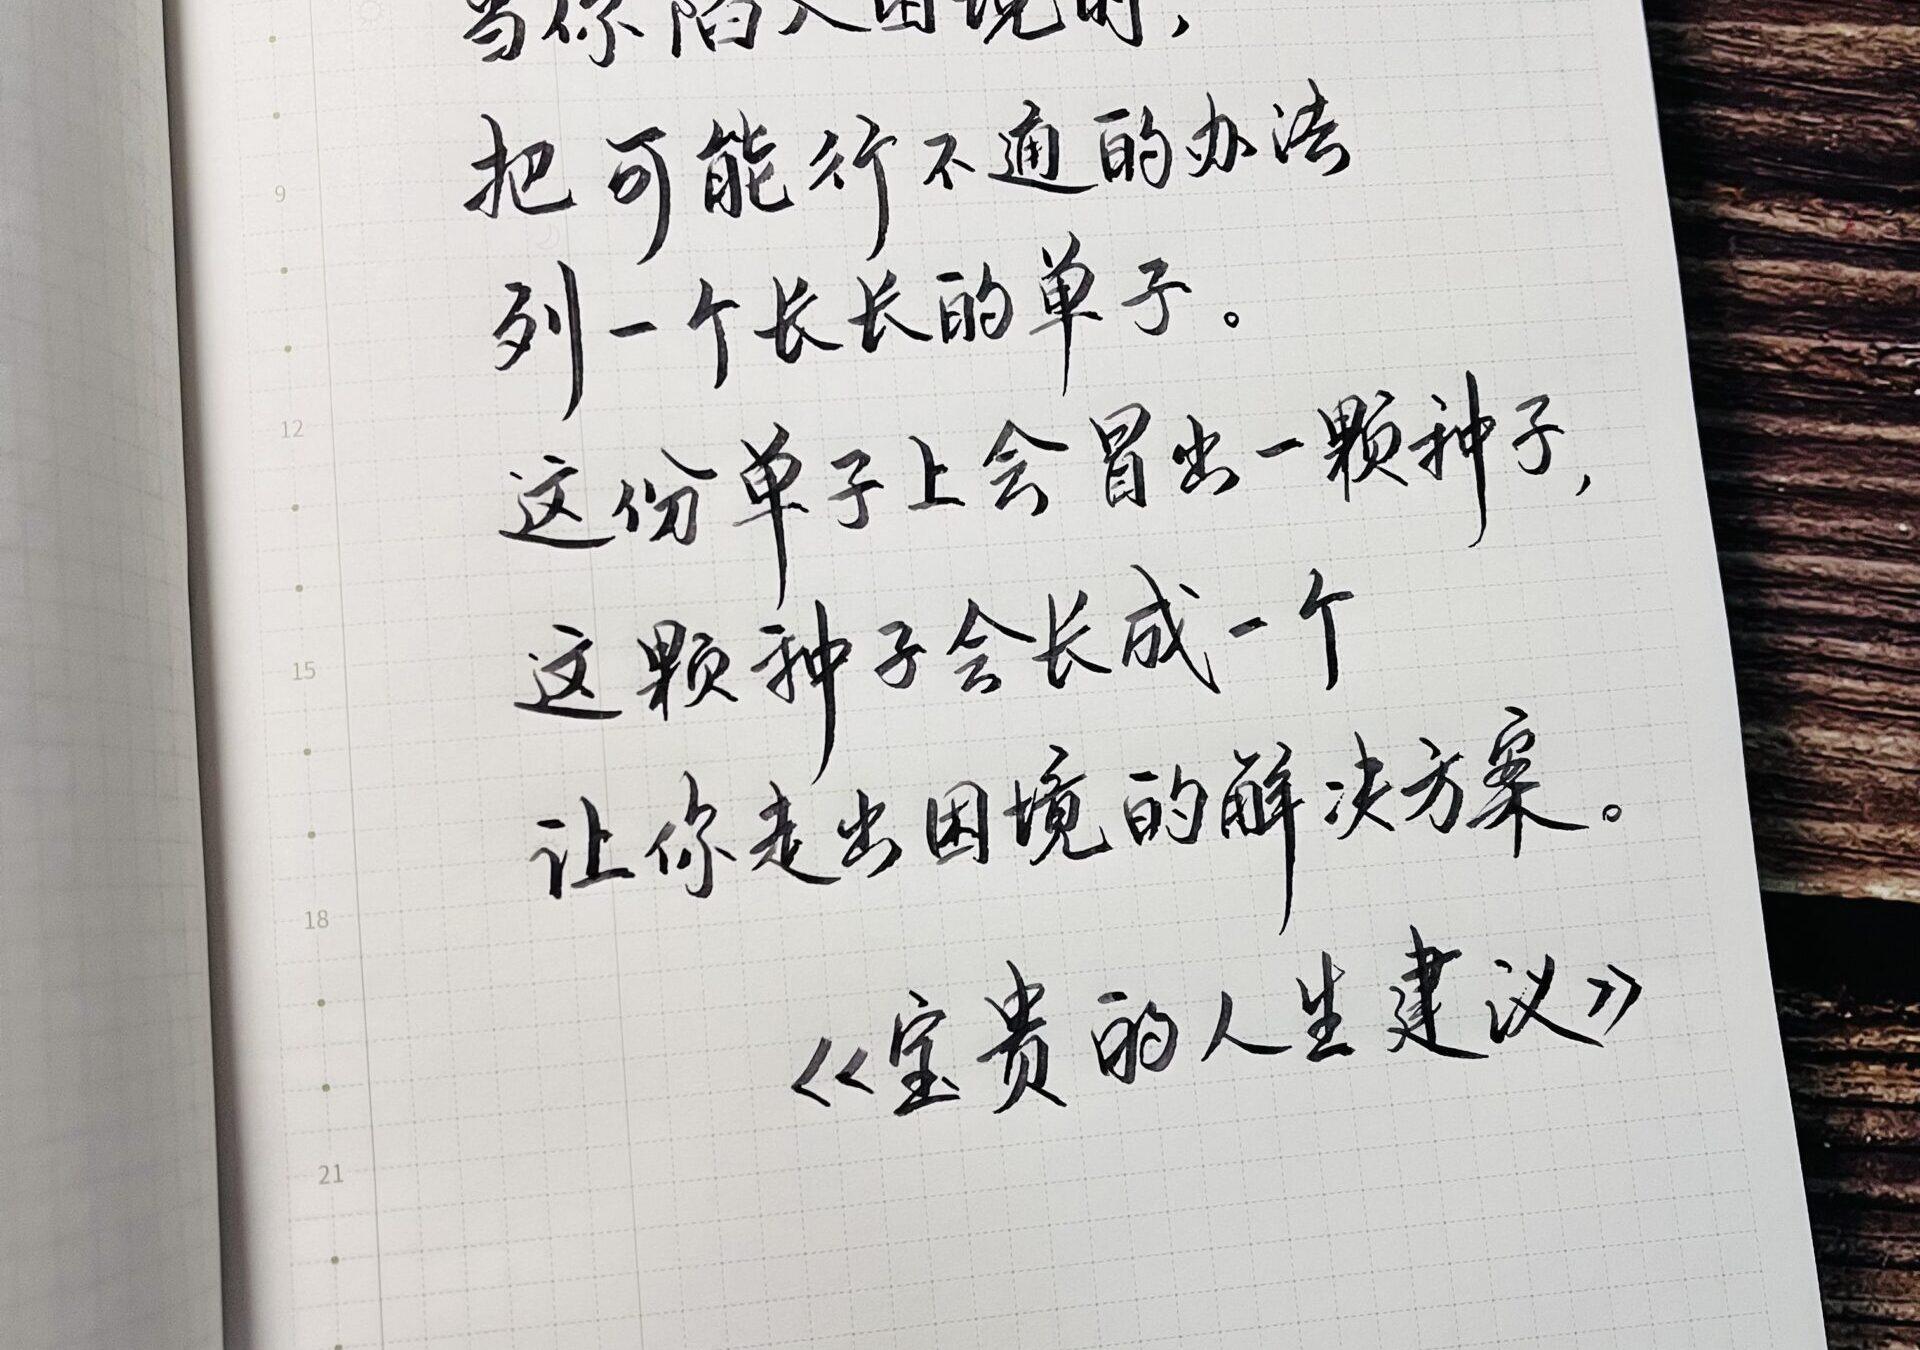 当你陷入困境时，
把可能行不通的办法
列一个长长的单子。
这份单子上会冒出一颗种子，
这颗种子会长成一个
让你走出困境的解决方案。
《宝贵的人生建议》
9
12
15
18
21